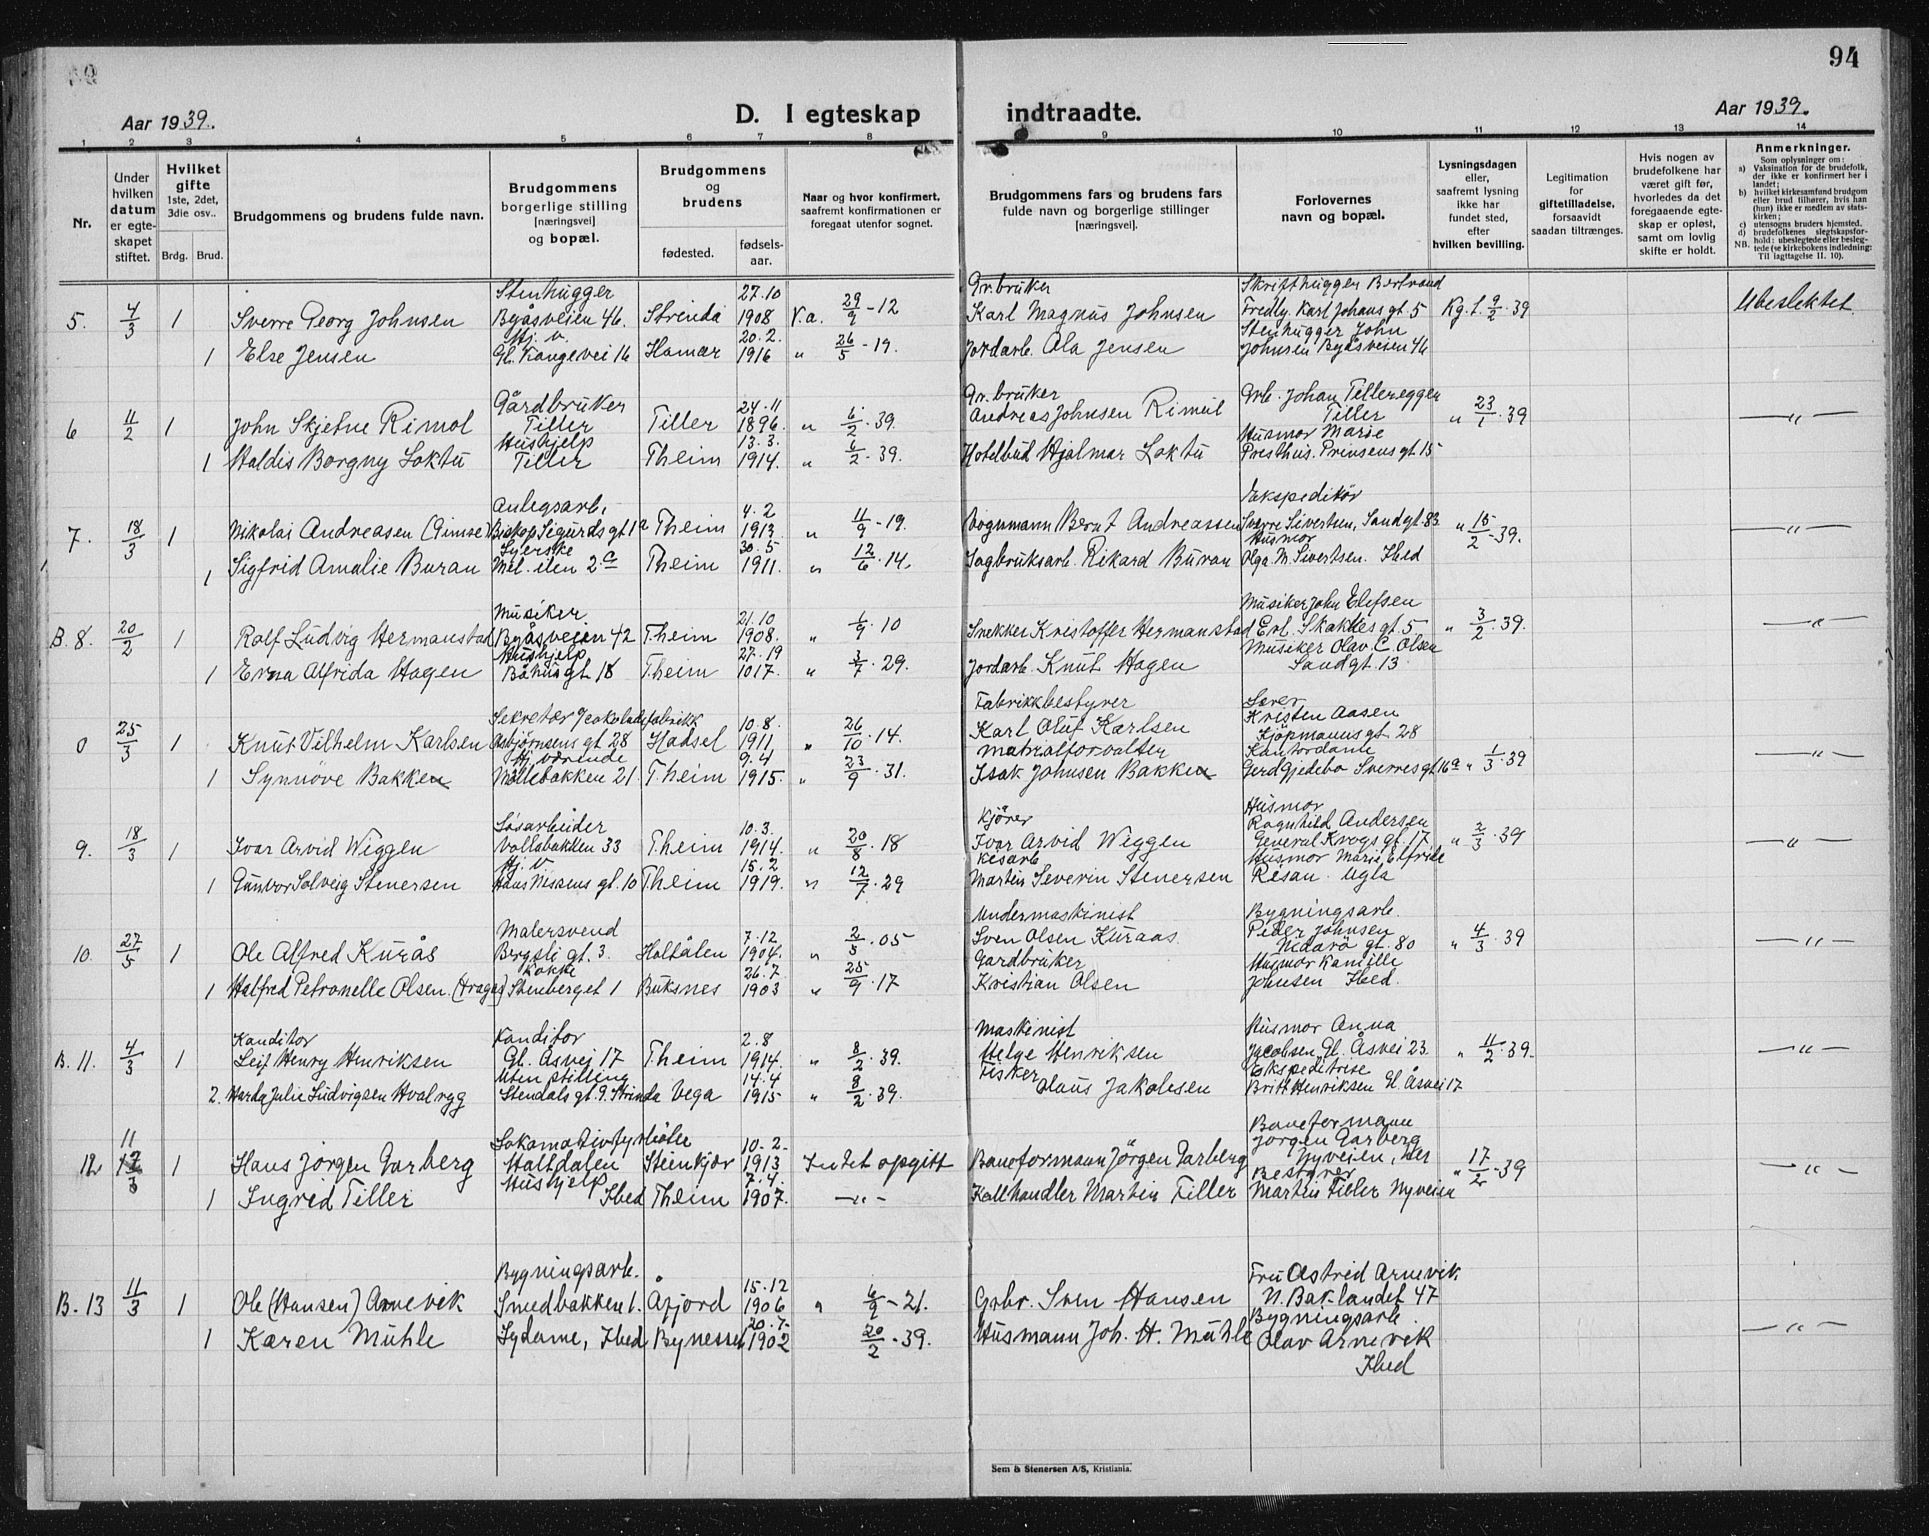 94
Aar 1939.
D. I egteskap indtraadte.
Aar 1939.
1 2 3 4 5 6 7 8 9 10 11 12 13 14
Nr.
Under hvilken datum er egteskapet stiftet.
Hvilket gifte 1ste, 2det, 3die osv..
Brdg. Brud.
Brudgommens og brudens fulde navn.
Brudgommens borgerlige stilling [næringsvei] og bopæl.
Brudgommens og brudens
fødested. fødsels-aar.
Naar og hvor konfirmert, saafremt konfirmationen er foregaat utenfor sognet.
Brudgommens fars og brudens fars fulde navn og borgerlige stillinger [næringsvei].
Forlovernes navn og bopæl.
Lysningsdagen eller, saafremt lysning ikke har fundet sted, efter hvilken bevilling.
Legitimation for giftetilladelse, forsaavidt saadan tiltrænges.
Hvis nogen av brudefolkene har været gift før, hvorledes da det foregaaende egteskap er opløst, samt om lovlig skifte er holdt.
Anmerkninger.
Som oplysninger om:
a) Vaksination for de brudefolk, der ikke er konfirmert her i landet;
b) hvilket kirkesamfund brudgom eller brud tilhører, hvis han (hun) ikke er medlem av statskirken;
c) utensogns bruders hjemsted.
d) brudefolkenes slegtskapsforhold: ubeslegtede eller beslegtede (se kirkebokens indledning:
NB. Til iagttagelse II. 10).
Stenhugger 27.10 Gr.bruker Skrifthugger Bertrand
5. 4/3 1 Sverre Georg Johnsen Byåsveien 46. Strinda 1908 V.a. 29/9 - 12 Karl Magnus Johnsen Fredly. Karl Johans gt. 5 Kg. l. 9/2 - 39 Ubeslektet
Hj. v. 20.2. Stenhugger John
1 Else Jensen Gl. Kongevei 16 Hamar 1916 " 26/5 - 19. Jordarb. Ola Jensen Johnsen Byåsveien 46
Gårdbruker 24.11 Gr. bruker Grb. Johan Tellereggen
6 11/2 1 John Skjetne Rimol Tiller Tiller 1896. " 6/2 . 39. Andreas Johnsen Rimul Tiller " 23/1 . 39 — " —
Hushjelp 13.3. Husmor Marie
1 Haldis Borgny Loktu Tiller Theim 1914. " 6/2 . 39. Hotelbud Hjalmar Loktu Presthus. Prinsens gt. 15
Anlegsarb. 4.2 Ekspeditør
7. 18/3 1 Nikolai Andreasen (Gimse) Biskop Sigurds gt 1a Theim 1913. " 11/9 - 19. Vognmann Bernt Andreassen Sverre Sivertsen, Sandgt. 83 " 15/2 - 39. — " —
Syerske 30.5 Husmor
1 Sigfrid Amalie Buran Mel. ilen 2c Theim 1911. " 12/6 . 14. Sagbruksarb. Rikard Buran Olga M. Sivertsen. Ibed
Musiker 21.10 Musiker John Elefsen
B. 8. 20/2 1 Rolf Ludvig Hermanstad Byåsveien 42 Theim 1908. " 6/9 . 10 Snekker Kristoffer Hermanstad Erl. Skakkes gt. 5 " 3/2 . 39. — " —
Hushjelp 27.19 Musiker Olav C. Olsen
1 Erna Alfrida Hagen Båhus gt 18 Theim 1017. " 3/7 . 29. Jordarb. Knut Hagen Sandgt. 13
Sekretær sjokoladefabrikk 10.8. Fabrikkbestyrer Lærer
0 25/3 1 Knut Vilhelm Karlsen Asbjørnsens gt 28 Hadsel 1911 " 26/10 . 14. Karl Oluf Karlsen Kristen Aasen
Kjøpmanns gt 28
Hj. værende 9.4 Matrialforvalter Kantordame
1 Synnöve Bakken Møllebakken 21. Theim 1915. " 23/9 . 31. Isak Johnsen Bakken Gerd Gjedebo Sverres gt 16a " 1/3 . 39 — " —
Løsarbeider 10.3. Kjörer Husmor
9. 18/3 1 Ivar Arvid Wiggen Vollabakken 33 Theim 1914. " 20/8 . 18 Ivar Arvid Wiggen Ragnhild Andersen
General Krogs gt. 17 " 2/3 . 39 — " —
Hj. v. 15.2 Husmor Marie Elfride
1 Gunvor Solveig Stenersen Hans Nissens gt. 10 Theim 1919. " 12/7 . 29 Martin Severin Stenersen Risan. Ugla
Malersvend 7.12 Undermaskinist Bygningsarb.
10. 27/5 1 Ole Alfred Kurås Bergsli gt. 3. Holtålen 1904. " 2/5 . 05 Sven Olsen Kuraas Peder Johnsen
Nidarö gt. 80 " 4/3 . 39 — " —
Kokke 26.7 Gardbruker Husmor Kamille
1 Halfred Petronelle Olsen. Stenberget 1 Buksnes 1903 " 25/9 . 17 Kristian Olsen Johnsen Ibed.
Kanditor Konditor 2.8 Maskinist Husmor Anna
B. 11. 4/3 1 Leif Henry Henriksen Gl. Åsvei 17 Theim 1914. " 8/2 . 39. Helge Henriksen Jacobsen Gl. Åsvei 23. " 11/2 . 39. — " —
Uten stilling 14.4 Fisker Ekspeditrise
2. Harda Julie Ludvigsen Hvalryg Stendals gt. 9. Strinda Vega 1915 " 8/2 . 39. Claus Jakobsen Britt Henriksen Gl Åsvei 17
Lokomotivfyrbøter 10.2- Baneformann
12 11/3 1 Hans Jörgen Garberg Haltdalen Steinkjær 1913 Intet opgitt Baneformann Jörgen Garberg Jörgen Garberg
Nyveien, her " 17/2 - 39 — " —
Hushjelp 7.4. Bestyrer
1 Ingrid Tiller Ibed Theim 1907. — " — Kallhandler Martin Tiller Martin Tiller Nyveien
Bygningsarb. 15.12 Fru Astrid Arnevik
B. 13 11/3 1 Ole (Hansen) Arnevik Smedbakken 1. Åfjord 1906 " 6/9 - 21. Grbr. Sven Hansen N. Baklandet 47
20.7- Bygningsarb.
1 Karen Mühle Sydame, Ibed Bynesset 1902 20/2 - 39. Husmann Joh. H. Mühle Olav Arnevik — " —
Ibed
Sem & Stenersen A/S, Kristiania.